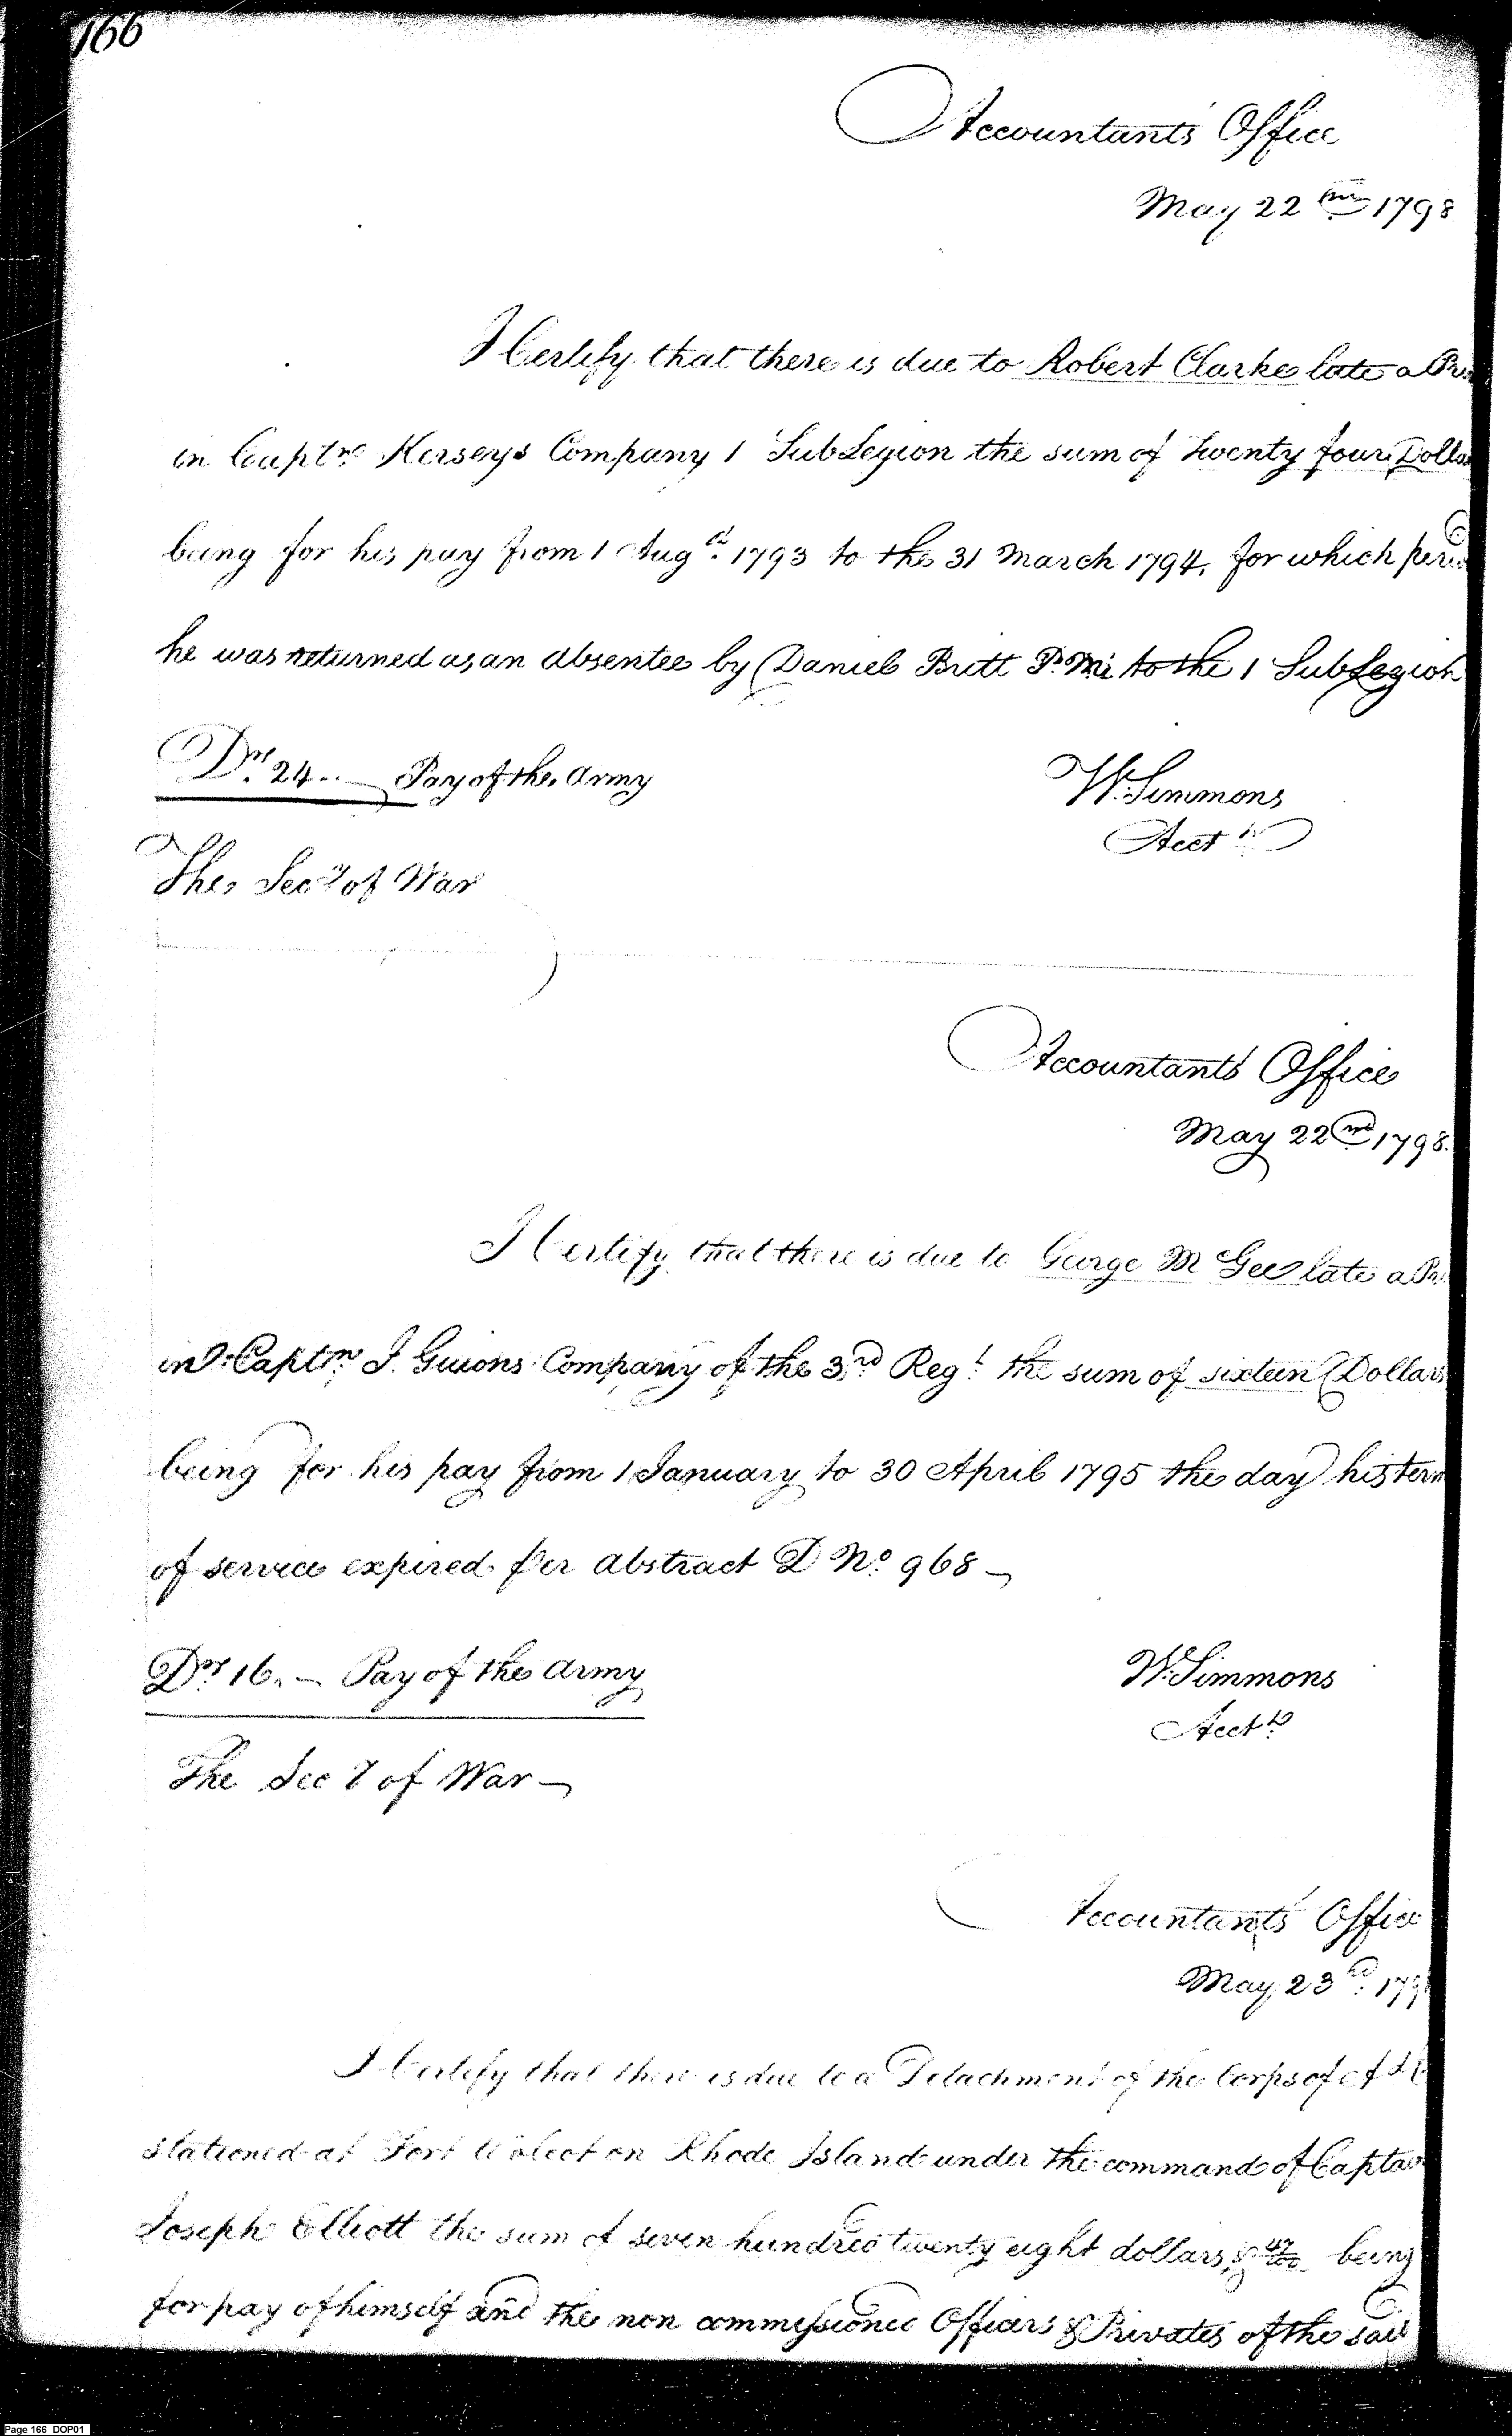 166
Accountants' Office
May 22nd 1798
I Certify that there is due to Robert Clarke late a
in Captns Kerseys Company 1 SubLegion the sum of twenty four Dolla
being for his pay from 1 Augst 1793 to the 31 March 1794, for which peri
he was returned as an absentee by Daniel Britt P. Mr to the 1 SubLegion
Drs 24.. — Pay of the Army
W. Simmons
Acct
The Secy of War
Accountants' Office
May 22nd 1798.
I Certify that there is due to George M Gee late a
in Captn J. Guions Company of the 3rd Regt the sum of sixteen Dollars
being for his pay from 1 January to 30 April 1795 the day his term
of service expired per abstract D No 968 —
Drs 16. — Pay of the Army
W. Simmons
Acct
The Secy of War —
Accountants' Office
May 23rd 179
I Certify that there is due to a Detachment of the Corps of A &
stationed at Fort Wolcot on Rhode Island under the command of Captain
Joseph Elliott the sum of seven hundred twenty eight dollars, & 47/100 being
for pay of himself and the non commissioned Officers & Privates of the said
Page 166 DOP01